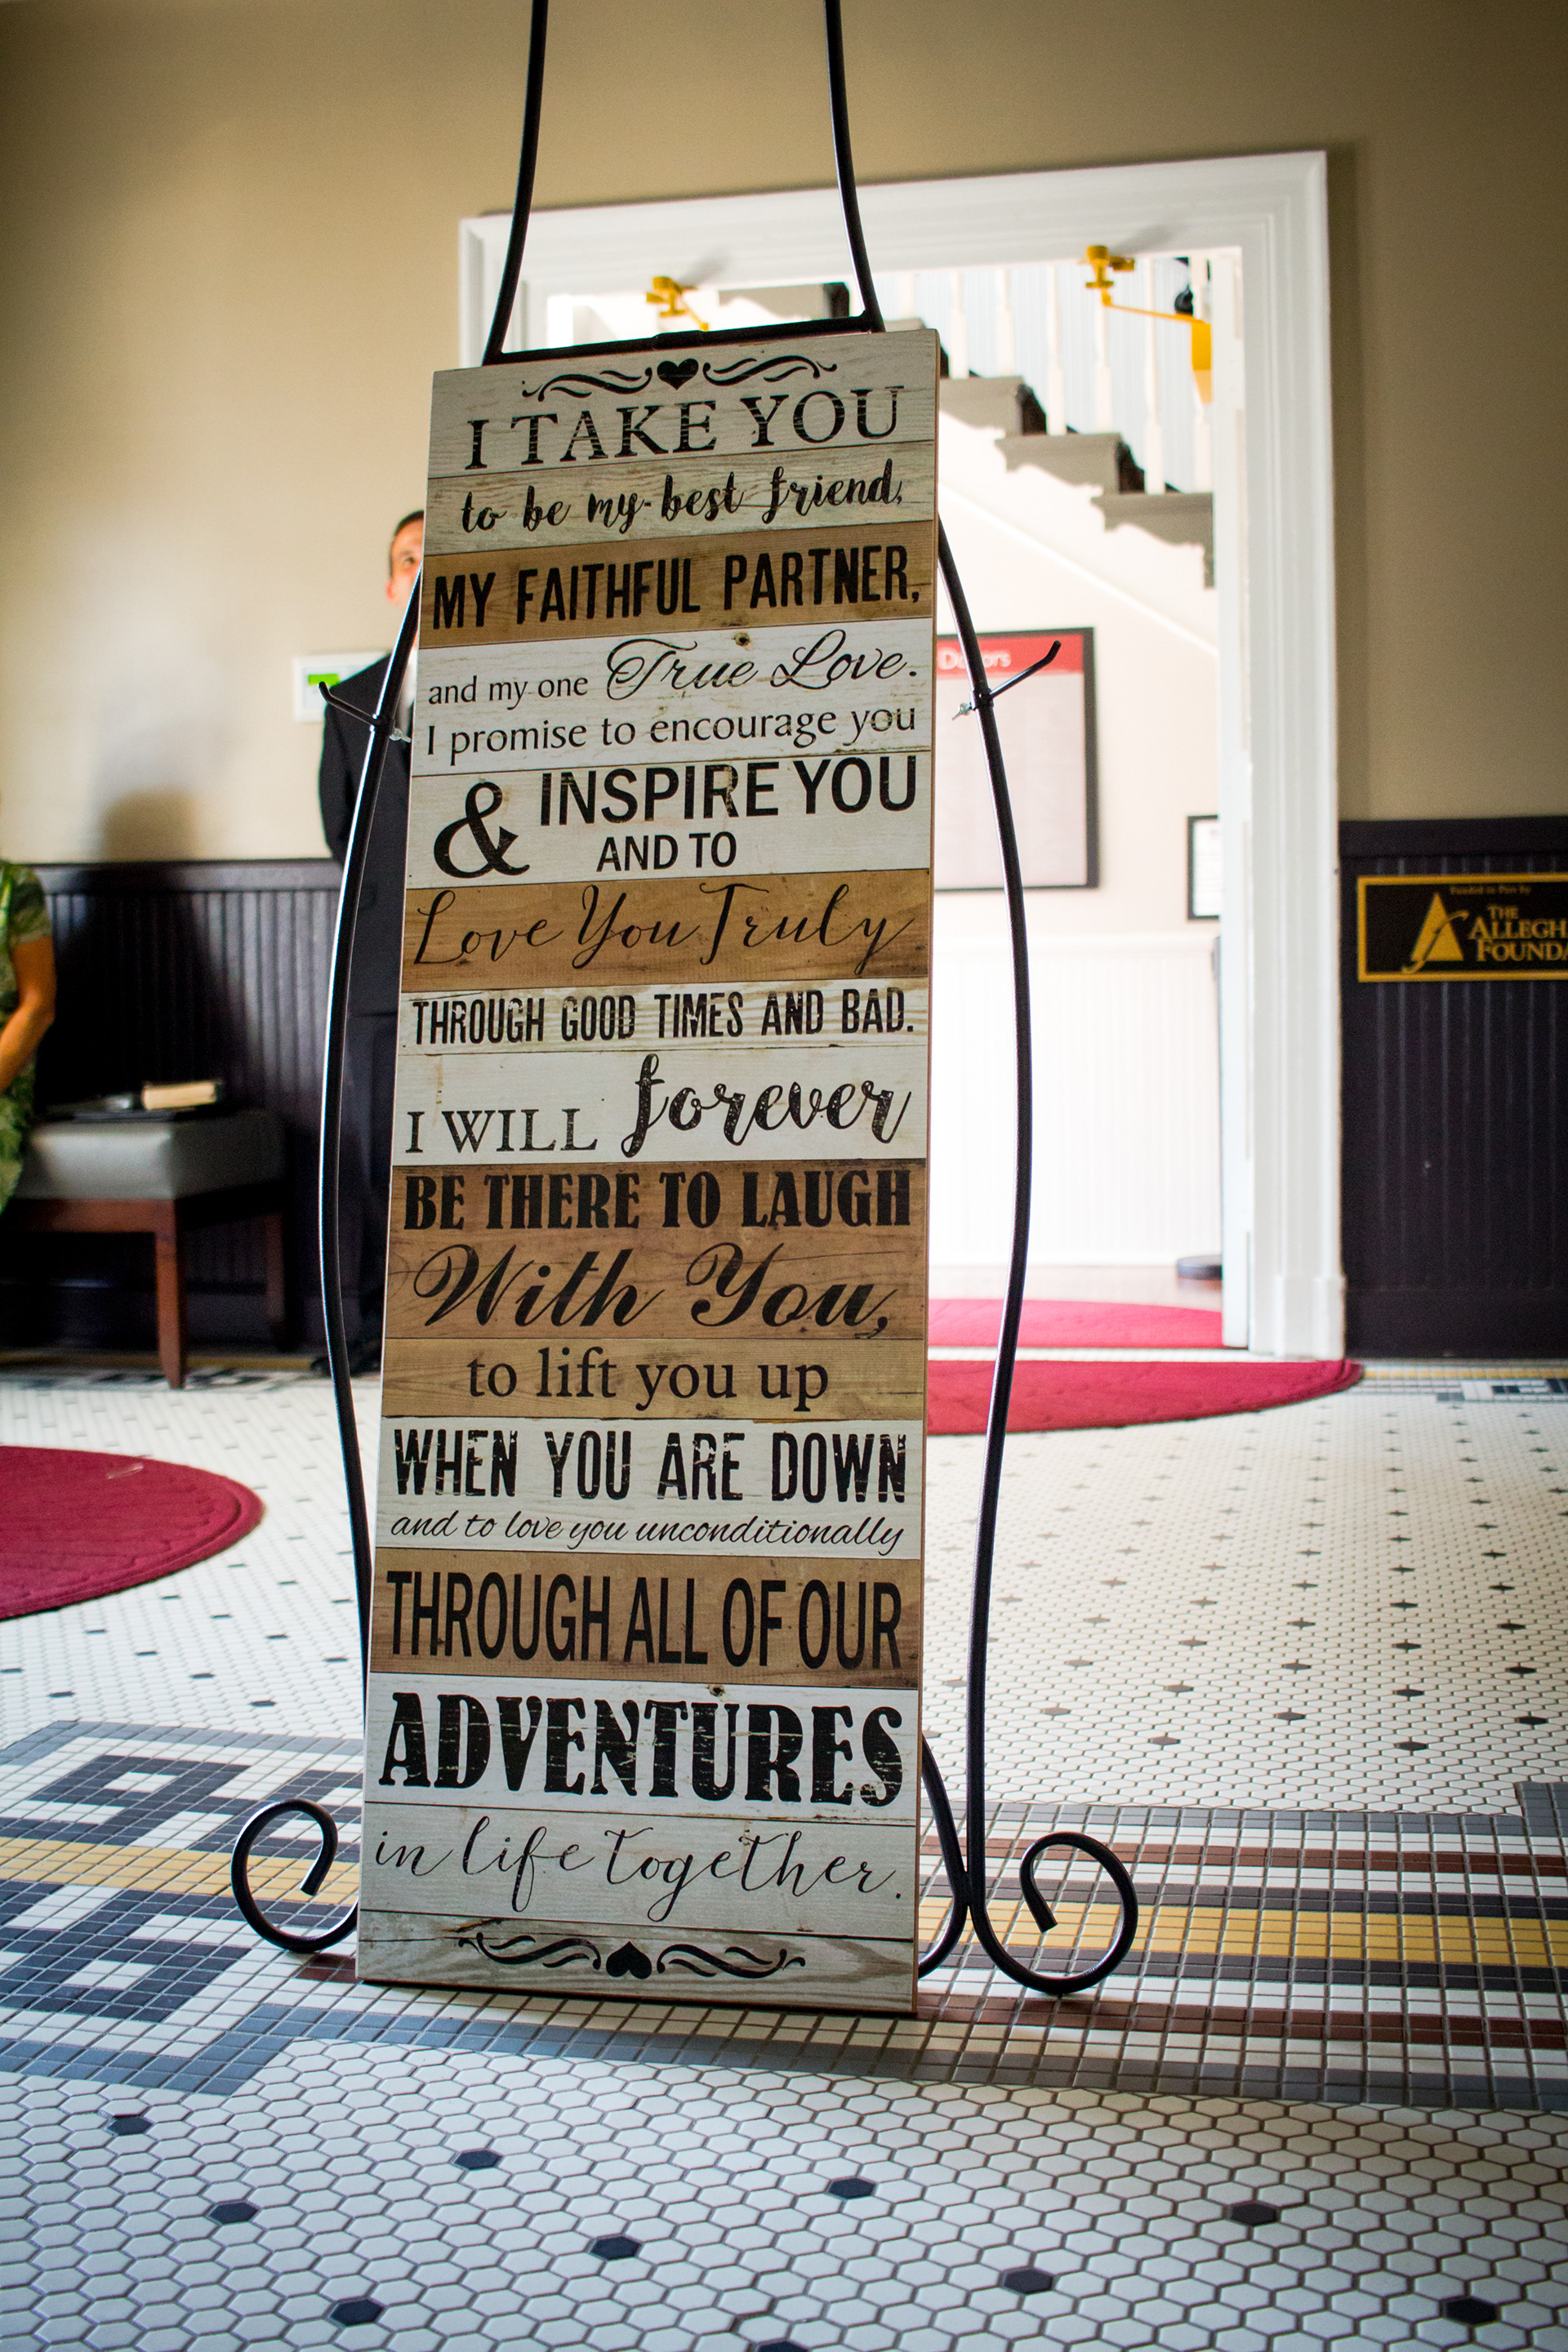 I TAKE YOU
to be my best friend,
MY FAITHFUL PARTNER,
and my one True Love.
I promise to encourage you
& INSPIRE YOU
AND TO
Love You Truly
THROUGH GOOD TIMES AND BAD.
I WILL forever
BE THERE TO LAUGH
With You,
to lift you up
WHEN YOU ARE DOWN
and to love you unconditionally
THROUGH ALL OF OUR
ADVENTURES
in life together.
Donors
Funded in Part by
THE
ALLEGH
FOUNDA